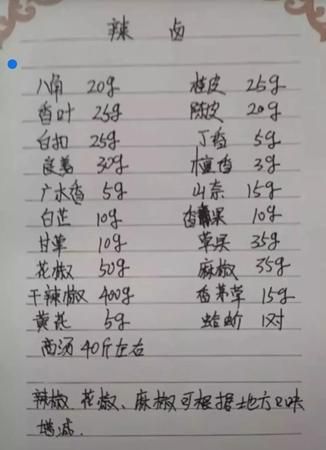 辣 卤
八角 20g 桂皮 25g
香叶 25g 陈皮 20g
白扣 25g 丁香 5g
良姜 30g 檀香 3g
广木香 5g 山奈 15g
白芷 10g 香果 10g
甘草 10g 草果 35g
花椒 50g 麻椒 35g
干辣椒 400g 香茅草 15g
黄芪 5g 蛤蚧 1对
卤汤 40斤左右
辣椒、花椒、麻椒可根据地方口味
增减.